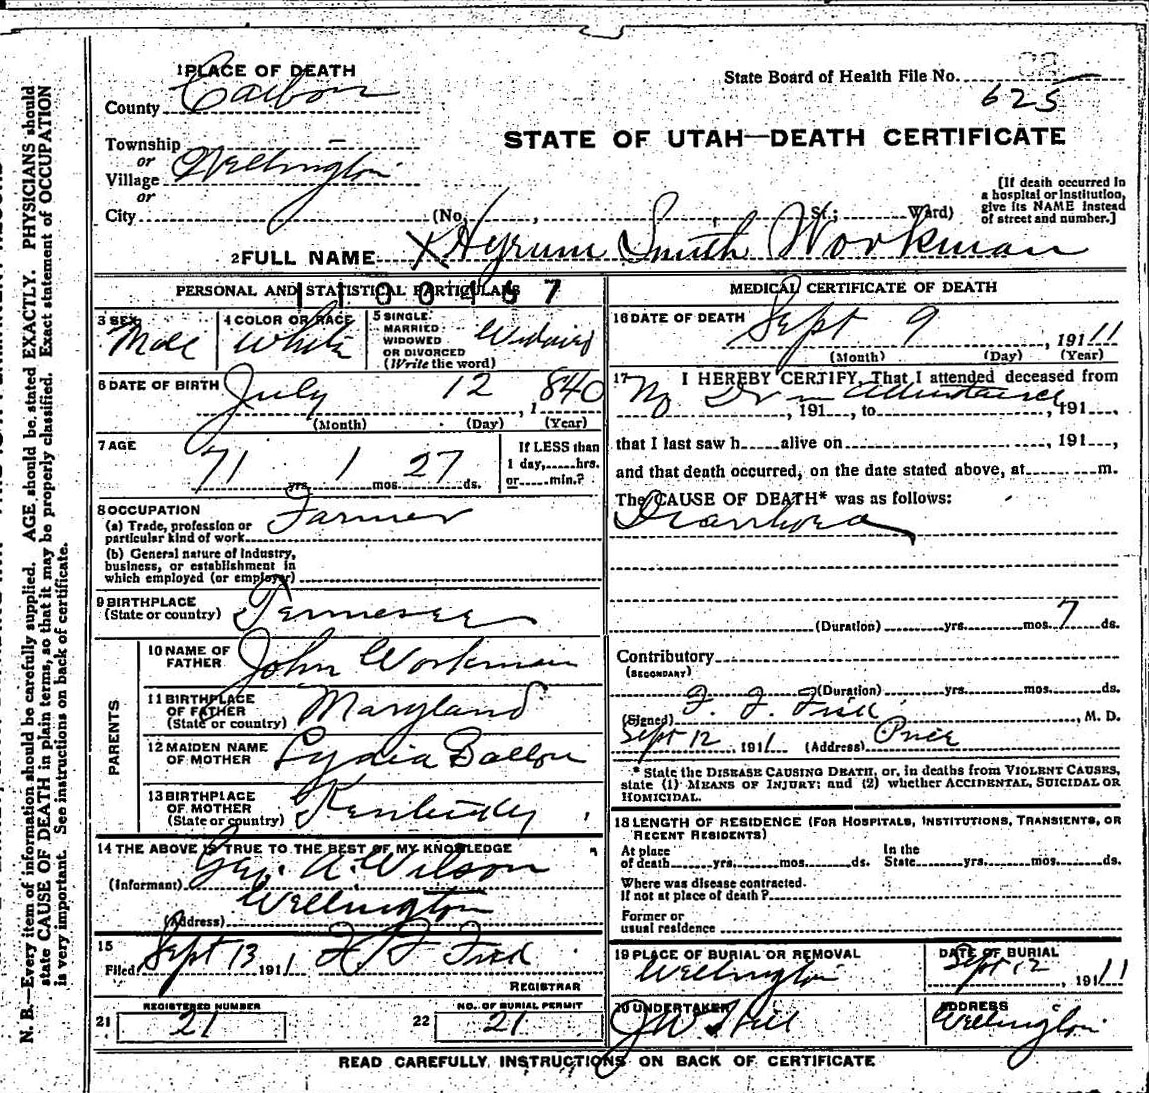 1 PLACE OF DEATH
County Carbon
Township
or
Village Wellington
or
City
State Board of Health File No.
625
STATE OF UTAH—DEATH CERTIFICATE
[If death occurred in
a hospital or institution,
give its NAME instead
of street and number.]
(No. , , St.; Ward)
2 FULL NAME X Hyrum Smith Workman
PERSONAL AND STATISTICAL PARTICULARS
3 SEX Male
4 COLOR OR RACE White
5 SINGLE
MARRIED
WIDOWED
OR DIVORCED
(Write the word)
6 DATE OF BIRTH July 12, 1840
(Month) (Day) (Year)
7 AGE
71 yrs. 1 mos. 27 ds.
If LESS than
1 day, hrs.
or min.?
8 OCCUPATION
(a) Trade, profession or
particular kind of work Farmer
(b) General nature of industry,
business, or establishment in
which employed (or employer)
9 BIRTHPLACE
(State or country) Tennessee
PARENTS
10 NAME OF
FATHER John Workman
11 BIRTHPLACE
OF FATHER
(State or country) Maryland
12 MAIDEN NAME
OF MOTHER Lydia
13 BIRTHPLACE
OF MOTHER
(State or country) Kentucky
14 THE ABOVE IS TRUE TO THE BEST OF MY KNOWLEDGE
(Informant) Geo. A. Wilson
(Address) Wellington
15
Filed Sept 13 1911
REGISTRAR
REGISTERED NUMBER
21 21
NO. OF BURIAL PERMIT
22 21
MEDICAL CERTIFICATE OF DEATH
16 DATE OF DEATH Sept 9, 1911
(Month) (Day) (Year)
17 I HEREBY CERTIFY, That I attended deceased from
No Dr in attendance
, 191 , to , 191 ,
that I last saw h alive on , 191 ,
and that death occurred, on the date stated above, at m.
The CAUSE OF DEATH* was as follows:
Diarrhoea
(Duration) yrs. mos. 7 ds.
Contributory
(SECONDARY)
(Duration) yrs. mos. ds.
(Signed) F. F. Fisk, M. D.
Sept 12, 1911 (Address) Price
* State the DISEASE CAUSING DEATH, or, in deaths from VIOLENT CAUSES,
state (1) MEANS OF INJURY; and (2) whether ACCIDENTAL, SUICIDAL OR
HOMICIDAL.
18 LENGTH OF RESIDENCE (FOR HOSPITALS, INSTITUTIONS, TRANSIENTS, OR
RECENT RESIDENTS)
At place
of death yrs. mos. ds.
In the
State yrs. mos. ds.
Where was disease contracted.
If not at place of death?
Former or
usual residence
19 PLACE OF BURIAL OR REMOVAL
Wellington
DATE OF BURIAL
Sept 12, 1911
20 UNDERTAKER
J W Hill
ADDRESS
Wellington
READ CAREFULLY, INSTRUCTIONS ON BACK OF CERTIFICATE
N. B.—Every item of information should be carefully supplied. AGE should be stated EXACTLY. PHYSICIANS should
state CAUSE OF DEATH in plain terms, so that it may be properly classified. Exact statement of OCCUPATION
is very important. See instructions on back of certificate.